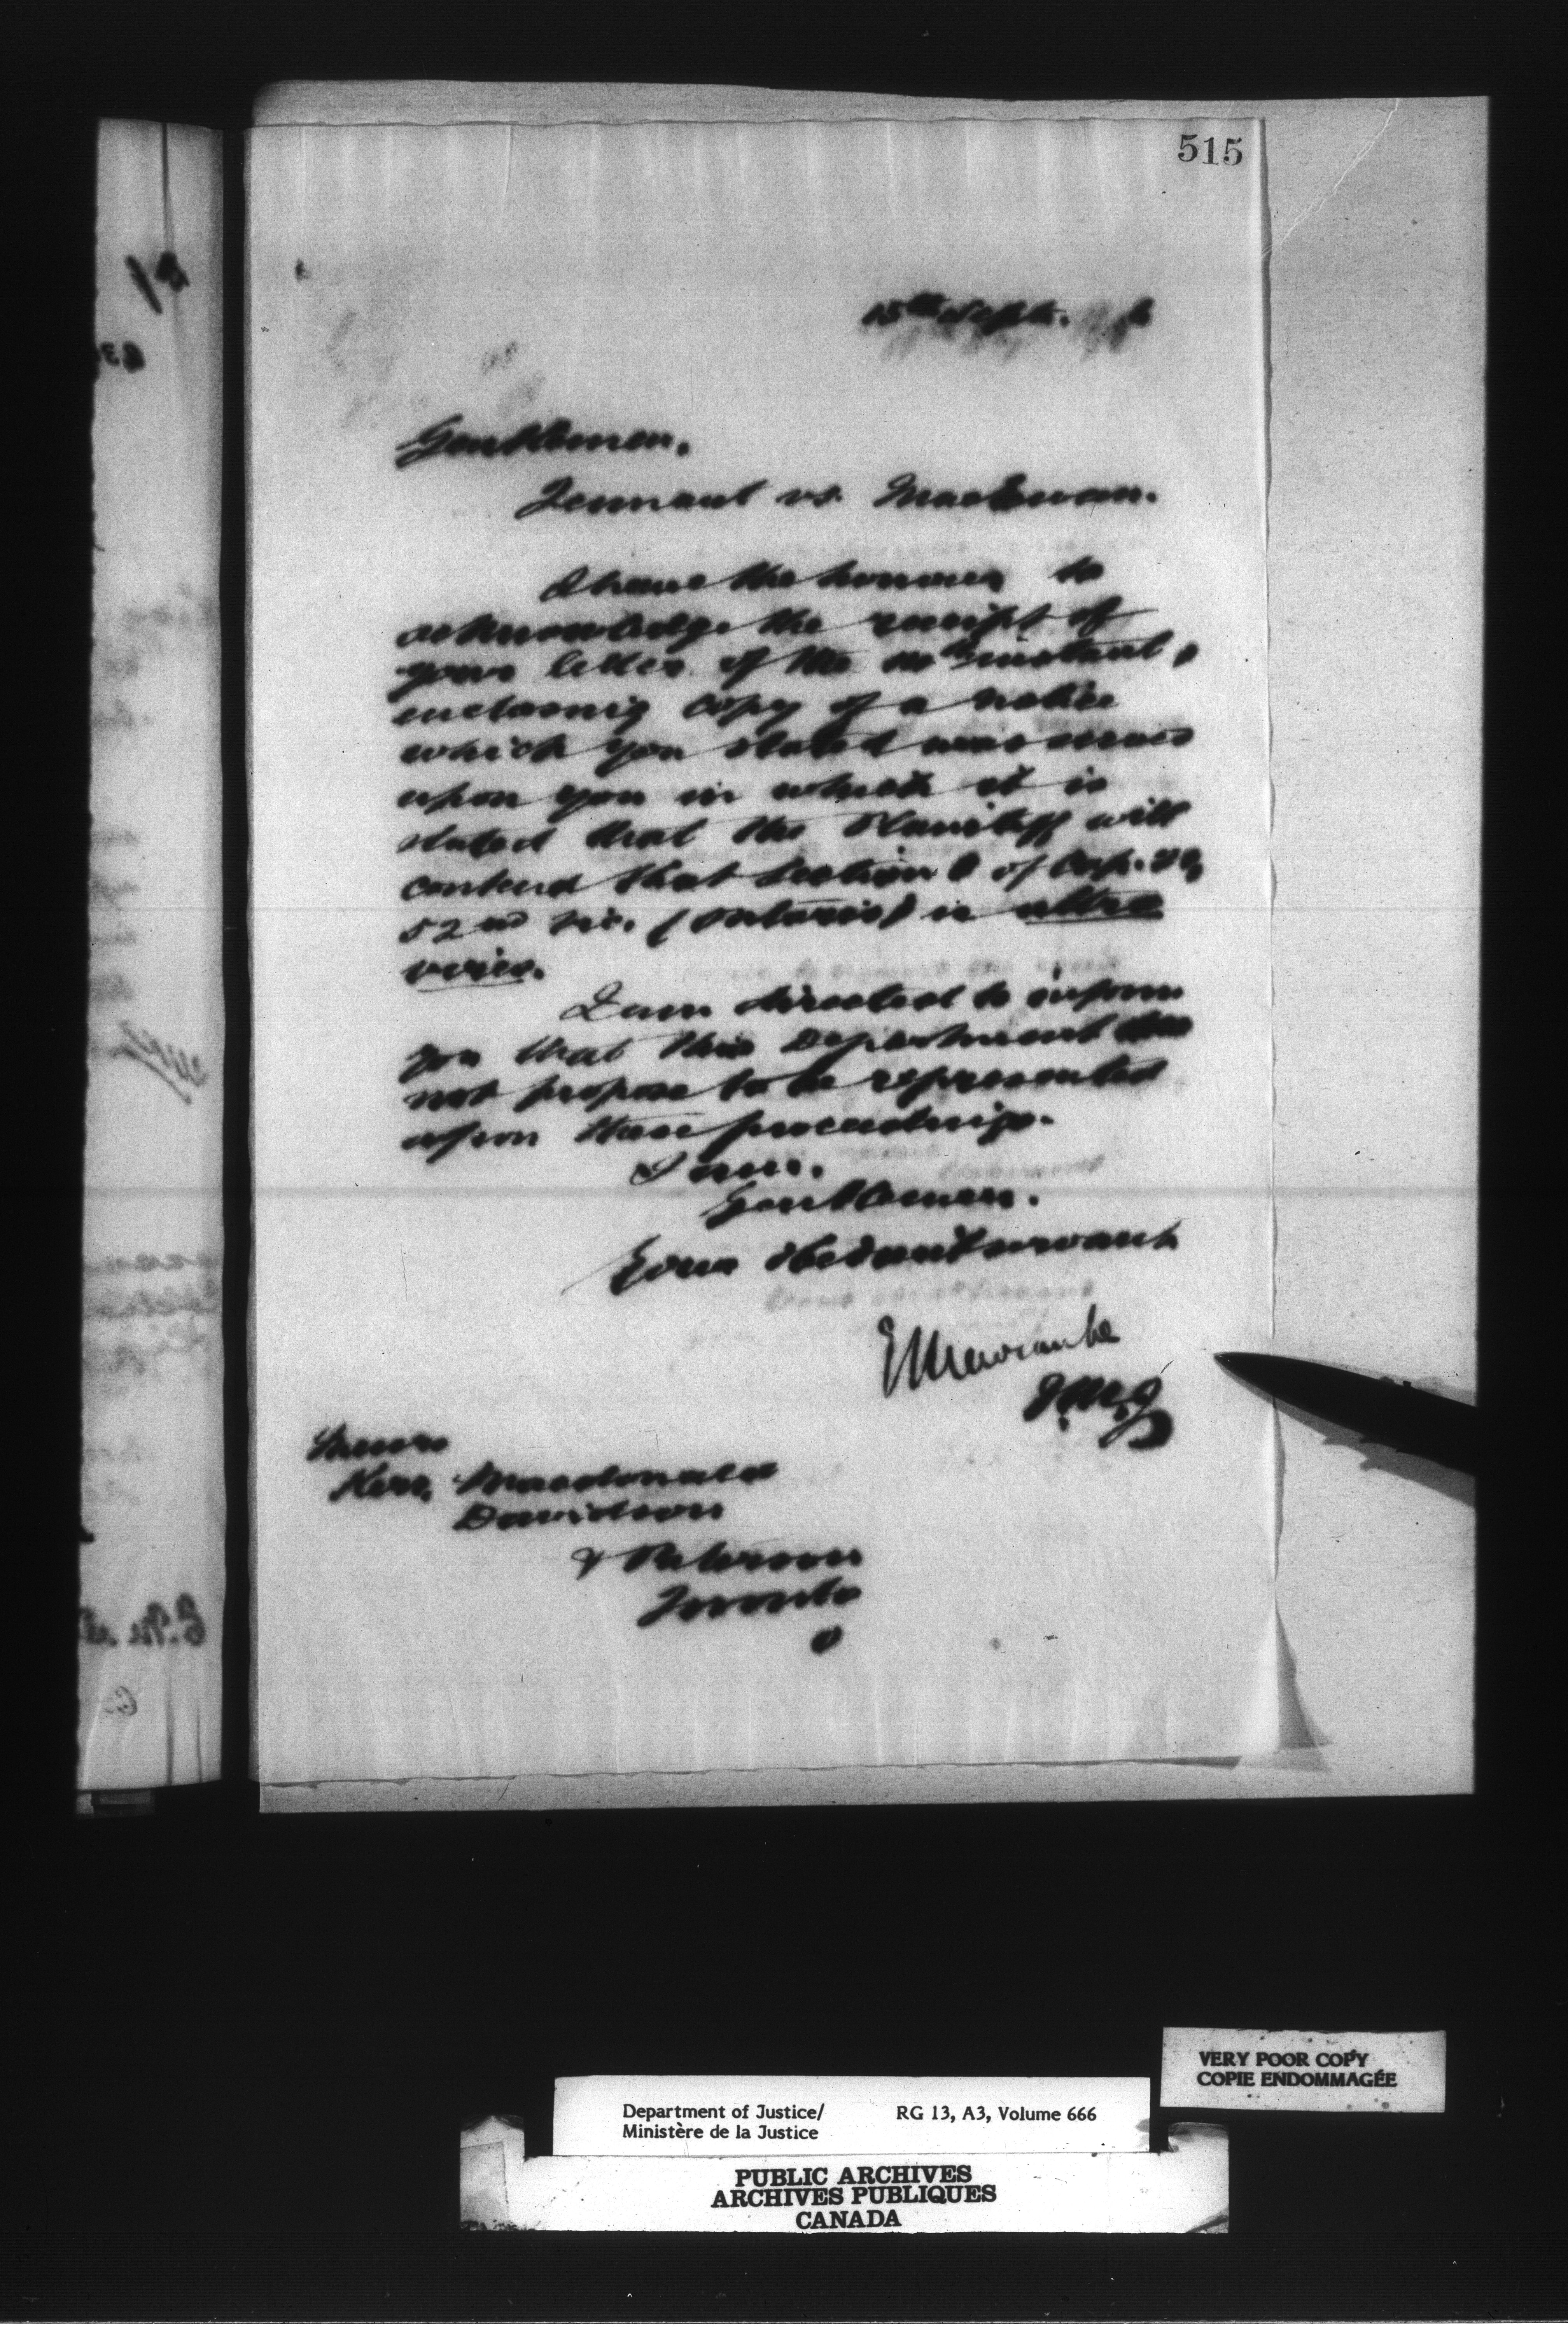 515
15th Sept.
Gentlemen,
Tennant vs. MacEwan.
I have the honour to
acknowledge the receipt of
your letter of the instant,
enclosing copy of a notice
which you stated was served
upon you in which it is
stated that the Plaintiff will
contend that Section of Cap. 20,
52nd Vic. (Ontario) is ultra
vires.
I am directed to inform
you that this Department does
not propose to be represented
upon these proceedings.
I am,
Gentlemen,
Your obedient servant
E Newcombe
D.M.J
Messrs
Kerr, Macdonald
Davidson
& Paterson
Toronto
O
VERY POOR COPY
COPIE ENDOMMAGÉE
Department of Justice/ RG 13, A3, Volume 666
Ministère de la Justice
PUBLIC ARCHIVES
ARCHIVES PUBLIQUES
CANADA